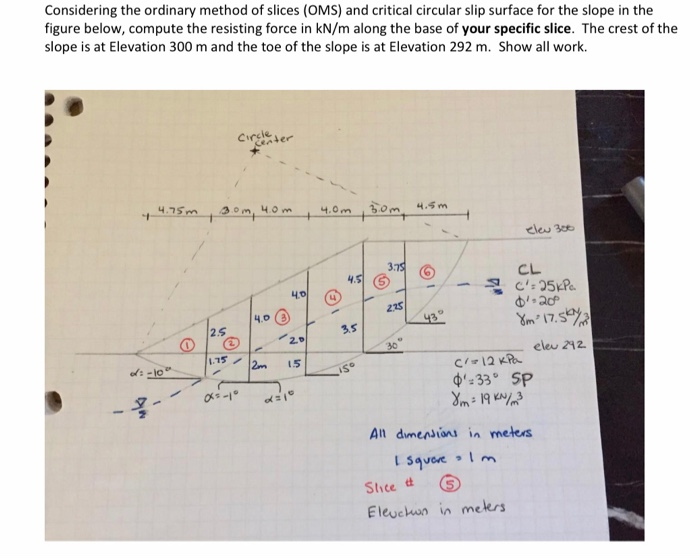 Considering the ordinary method of slices (OMS) and critical circular slip surface for the slope in the
figure below, compute the resisting force in kN/m along the base of your specific slice. The crest of the
slope is at Elevation 300 m and the toe of the slope is at Elevation 292 m. Show all work.
Circle
Center
4.75m 3.0m 4.0m 4.0m 3.0m 4.5m
elev 300
3.75 6 CL
4.5 5 C'=25kPa
4.0 4 ϕ'=20°
4.0 3 2.25 43° γm=17.5kN/m³
2.5 3.5
1 2 2.0 30° elev 292
1.75 2m 1.5 15° C'=12 kPa
α=-10° ϕ'=33° SP
α=-1° α=1° γm=19 kN/m³
All dimensions in meters
1 square = 1 m
Slice # 5
Elevation in meters